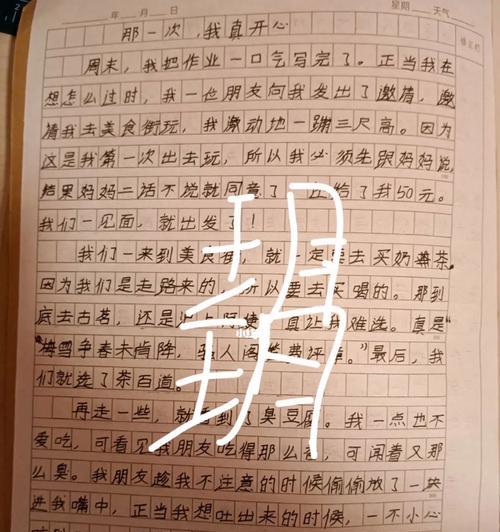 年 月 日 星期 天气
那一次,我真开心
周末,我把作业一口气写完了。正当我在
想怎么过时,我一位朋友向我发出了邀请,邀
请我去美食街玩,我激动地一蹦三尺高。因为
这是我第一次出去玩,所以我必须先跟妈妈说,
结果妈妈二话不说就同意了 还给了我50元。
我们一见面,就出发了!
我们一来到美食街,就一定要去买奶茶,
因为我们是走路来的,所以要去买喝的。那到
底去古茗,还是沪上阿姨 真让我难选。真是“
梅雪争春未肯降,骚人阁笔费评章。”最后,我
们就选了茶百道。
再走一些,就看到了臭豆腐。我一点也不
爱吃,可看见我朋友吃得那么香,可闻着又那
么臭。我朋友趁我不注意的时候偷偷放了一块
进我嘴中,正当我想吐出来的时候,一不小心